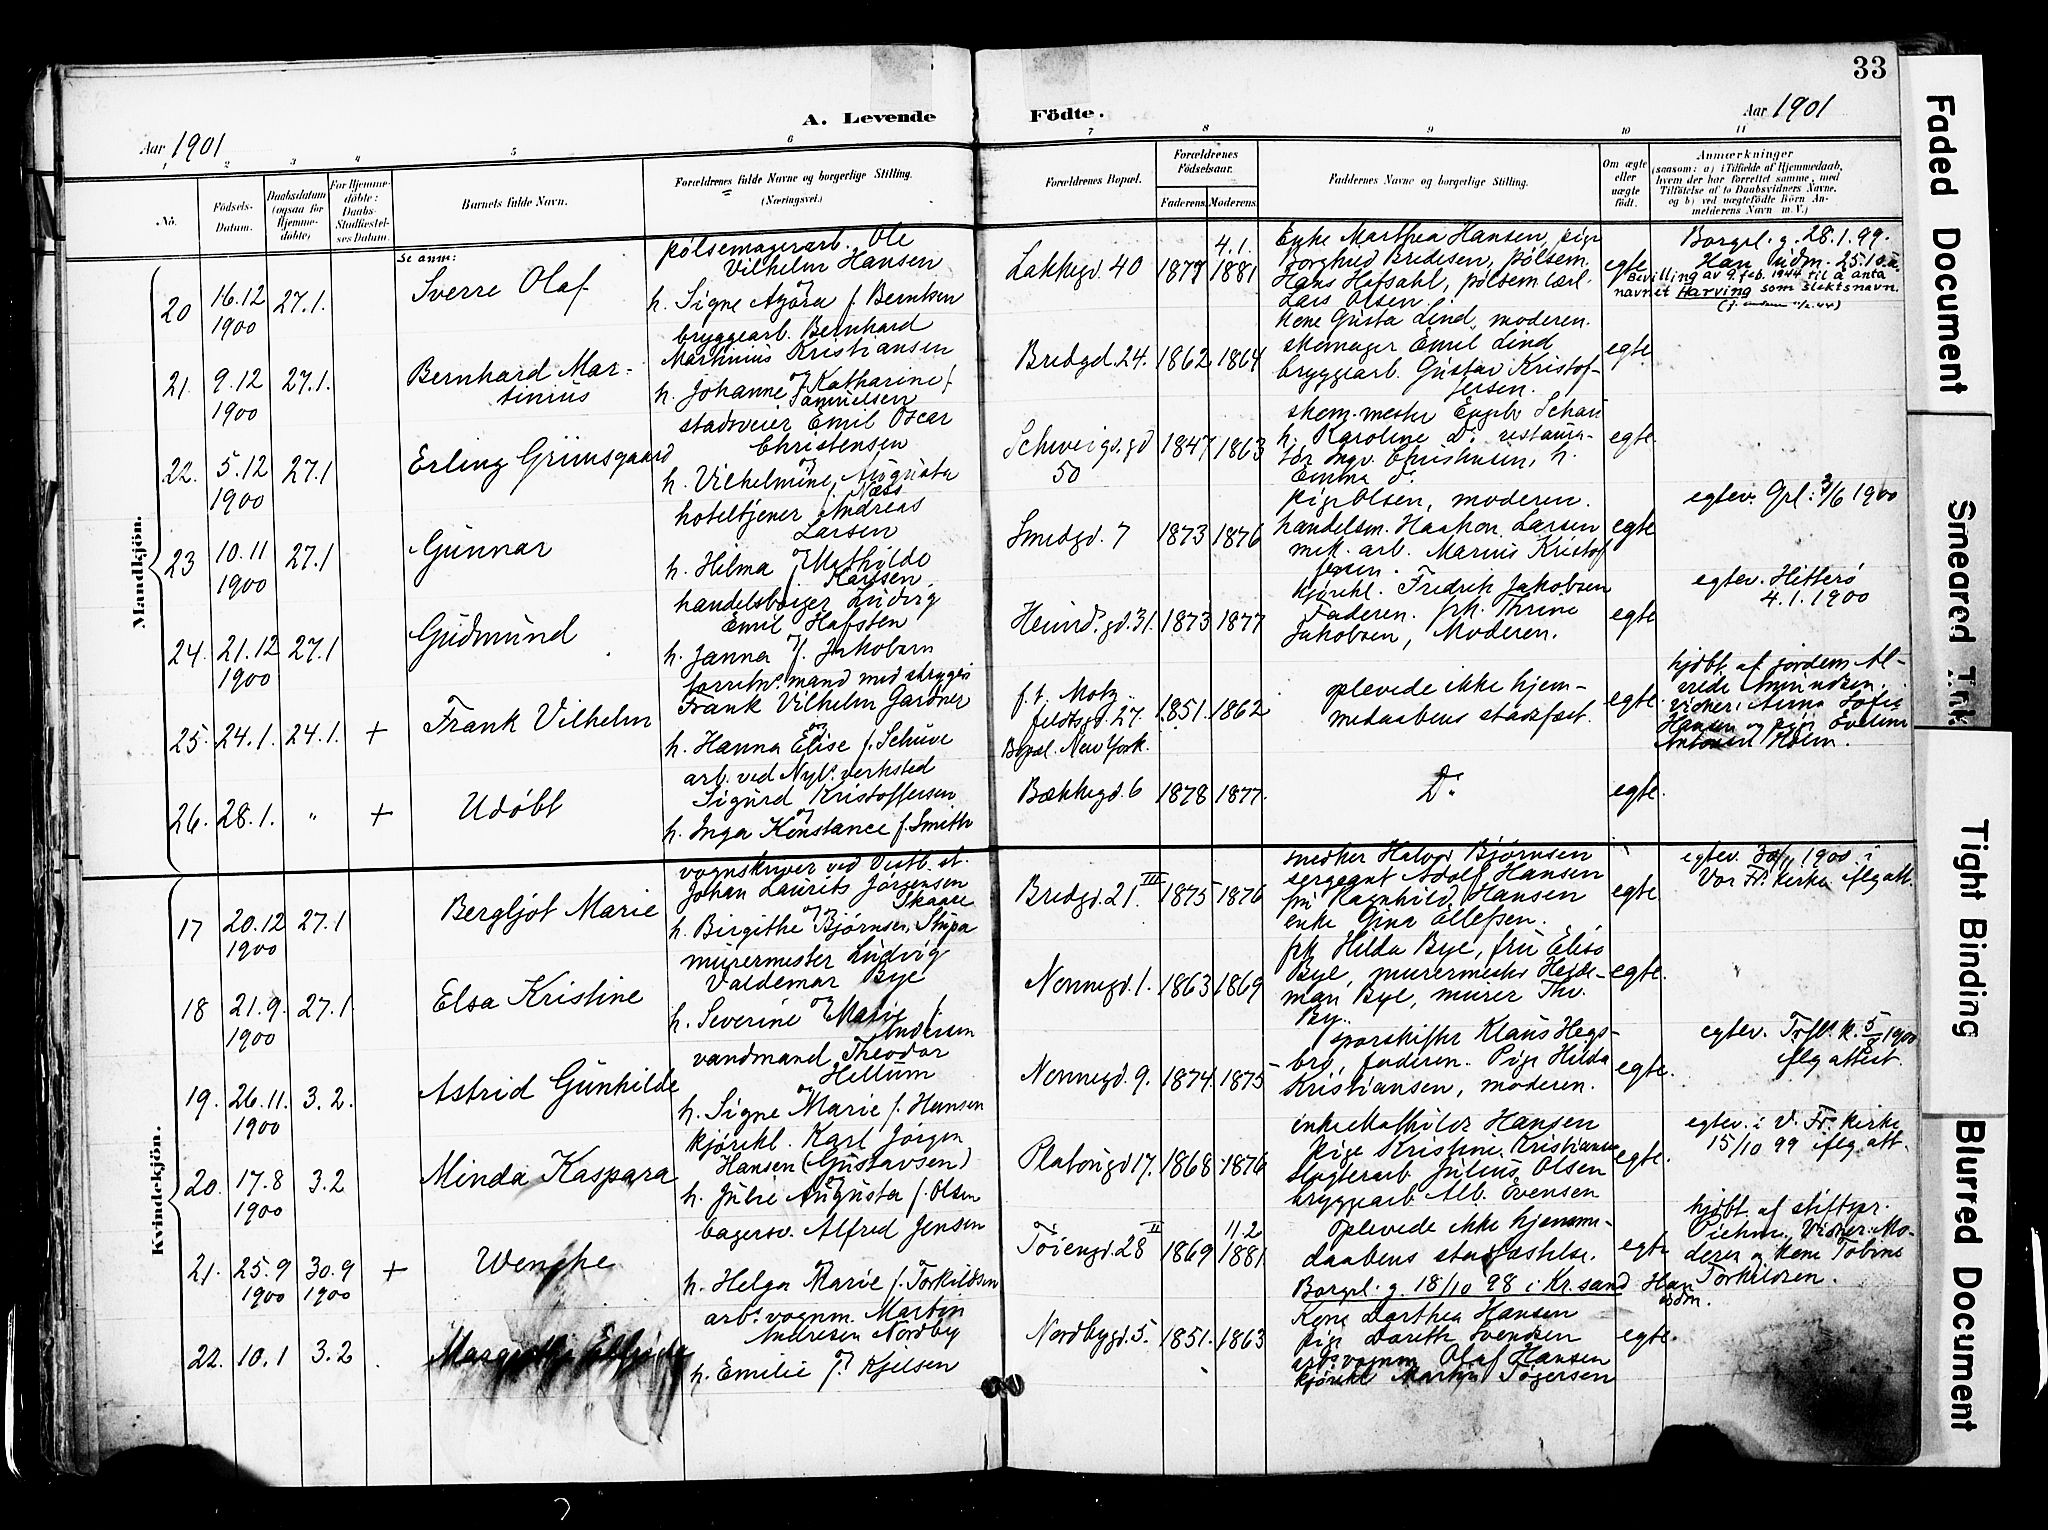 33
A. Levende Födte.
Aar 1901
Aar 1901
1 2 3 4 5 6 7 8 9 10 11
No.
Födsels-Datum.
Daabsdatum (ogsaa for Hjemme-döbte)
For Hjemme-döbte: Daabs-Stadfæstel-ses Datum.
Barnets fulde Navn.
Forældrenes fulde Navne og borgerlige Stilling.
(Næringsvei.)
Forældrenes Bopæl.
Forældrenes Födselsaar.
Faderens. Moderens.
Faddernes Navne og borgerlige Stilling.
Om ægte eller uægte födt.
Anmærkninger
(saasom: a) i Tilfælde af Hjemmedaab,
hvem der har forrettet samme, med
Tilföielse af to Daabsvidners Navne,
og b) ved uægtefödte Börn An-
melderens Navn m. V.)
Mandkjön.
20 16.12 1900 27.1.
Se anm:
Sverre Olaf
pølsemagerarb. Ole
Vilhelm Hansen
og
h. Signe Agöra f. Berntsen
Lakkegd. 40 1877 4.1. 1881
Enke Marthea Hansen, pige
Borghild Bredesen, pølsem.
Hans Hofsahl, pølsem.lærl.
Lars Olsen.
egte
Borgel. g. 28.1.99.
Bevilling av 9. feb. 1944 til å anta
navnet Harving som slektsnavn.
21. 9.12 1900 27.1.
Bernhard Mar-
tinius
bryggearb. Bernhard
Martinius Kristiansen
og
h. Johanne Katharine f.
Samuelsen
Bredgd. 24. 1862 1864
Kone Gusta Lind, moderen.
skomager Emil Lind
bryggearb. Gustav Kristof-
fersen.
egte
22. 5.12 1900 27.1
Erling Grimsgaard
stadsveier Emil Oscar
Christensen
og
h. Vilhelmine Augusta
f. Næss
Schweigs.gd 50 1847 1863
skom.mester Engebr. Schau
h. Karoline Do restaura-
tør Ingv. Christensen, h.
Emma do
egte
23 10.11 1900 27.1
Gunnar
hoteltjener Andreas
Larsen
og
h. Hilma Mathilde
f. Karlsen.
Smedgd. 7 1873 1876
pige Olsen, moderen.
handelsm. Haakon Larsen
mek. arb. Marius Kristof
fersen.
egte
egtev. Grl: 3/6 1900
24. 21.12 1900 27.1
Gudmund
handelsborger Ludvig
Emil Hafsten
og
h. Janna f. Jakobsen
Heimd.gd. 31. 1873 1877
kjørekl. Fredrik Jakobsen
Faderen. frk. Thrine
Jakobsen, Moderen.
egte
egtev. Hitterö
4.1.1900
25. 24.1. 24.1. +
Frank Vilhelm
forretn.mand med strygei
Frank Vilhelm Gardner
og
h. Hanna Elise f. Schuve
f.t. Motz
feldtsgd. 27.
Bopæl. New York. 1851. 1862
oplevede ikke hjem-
medaabens stadfæst.
egte.
hjdbt. af jordem. Al-
vilde Amundsen.
vidner: Anna Sofie
Hansen og pige Eveline
Antonsen Holm.
26. 28.1. " +
Udøbt
arb. ved Nyl. verksted
Sigurd Kristoffersen
og
h. Inga Konstance f. Smith
Bækkegd. 6 1878 1877.
Do
egte.
Kvindekjön.
17 20.12 1900 27.1
Bergljot Marie
vognskriver ved Vestb. st.
Johan Laurits Jörgensen
Skaare
og
h. Birgithe Bjørnsen Stupa
Bredgd. 21. III 1875 1876
snedker Halvor Bjørnsen
sergeant Adolf Hansen
fru Ragnhild Hansen
enke Gina Ellefsen.
egte
egtev. 30/11 1900 i
Vor Fr. kirke iflg att.
18 21.9. 1900 27.1.
Elsa Kristine
murermester Ludvig
Valdemar Bye
og
h. Severine Marie f.
Andersen
Nonnegd. 1. 1863 1869
frk Hilda Bye, fru Elise
Bye, murermester Helde-
man Bye, murer Thv.
By.
egte.
19. 26.11. 1900 3.2.
Astrid Gunhilde
vandmand Theodor
Hellum
og
h. Signe Marie f. Hansen
Nonnegd. 9. 1874. 1875
Sporskifter Klaus Hegs-
bro, faderen. Pige Hilda
Kristiansen, moderen.
egte.
egtev. Trfk. 5/8 1900
iflg attest.
20. 17.8 1900 3.2
Minda Kaspara
kjørekl. Karl Jörgen
Hansen (Gustavsen)
og
h. Julie Augusta f. Olsen
Platousgd 17. 1868 1876
enke Mathilde Hansen
pige Kristine Kristiansen
slagterarb. Julius Olsen
bryggearb. Alb. Evensen
egte.
egtev. i V. Fr. kirke
15/10 99 iflg att.
21. 25.9 1900 30.9 1900 +
Wenche
bagersv. Alfred Jensen
og
h. Helga Marie f. Torkildsen
Töiengd. 28 II 1869 11.2 1881.
oplevede ikke hjemme-
daabens stadfæstelse.
Borgel. g. 18/10 98 i Kr.sand
egte
hjdbt. af stiftspr.
Vidner: Mo-
deren og kone Tobine
Torkildsen.
22. 10.1 3.2
arb. vognm. Martin
Nordby
og
h. Emilie f. Kjelsen
Nordbygd. 5. 1851. 1863
Kone Dorthea Hansen
pige Dorth. Svendsen
arb. vognm. Olaf Hansen
kjørekl Martin Tögersen
egte.
Faded Document
Smeared Ink
Tight Binding
Blurred Document